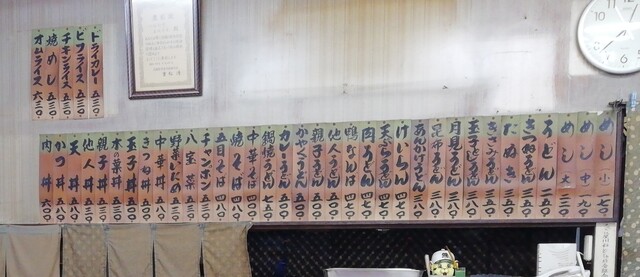 ドライカレー 五三〇
ビフライス 五三〇
チキンライス 五三〇
焼めし 五三〇
オムライス 六三〇
めし(小) 一七〇
めし(中) 一九〇
めし(大) 二二〇
うどん 二五〇
きつねうどん 三一〇
たぬき 三一〇
きざみうどん 三一〇
玉子とじうどん 三八〇
月見うどん 三八〇
昆布うどん 三八〇
あんかけうどん 三八〇
けいらん 四七〇
天ぷらうどん 四七〇
肉うどん 四七〇
鴨なんば 四八〇
他人うどん 五〇〇
親子うどん 五〇〇
かやくうどん 五〇〇
カレーうどん 五〇〇
鍋焼うどん 七五〇
中華そば 四八〇
焼そば 四八〇
五目そば 五三〇
チャンポン 五三〇
八宝菜 五三〇
野菜いため 五三〇
きつね丼 五〇〇
玉子丼 五〇〇
木の葉丼 五三〇
他人丼 五三〇
親子丼 五三〇
天丼
かつ丼
肉丼 六〇〇